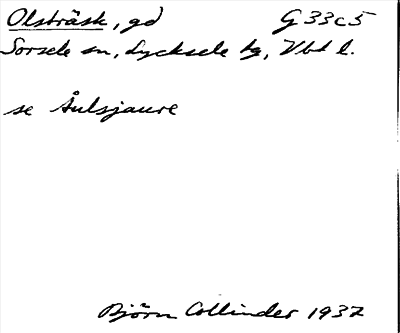 Olsträsk, gd G33c5
Sorsele sn, Lycksele tg, Vbt l.
se Åulsjaure
Björn Collinder 1937